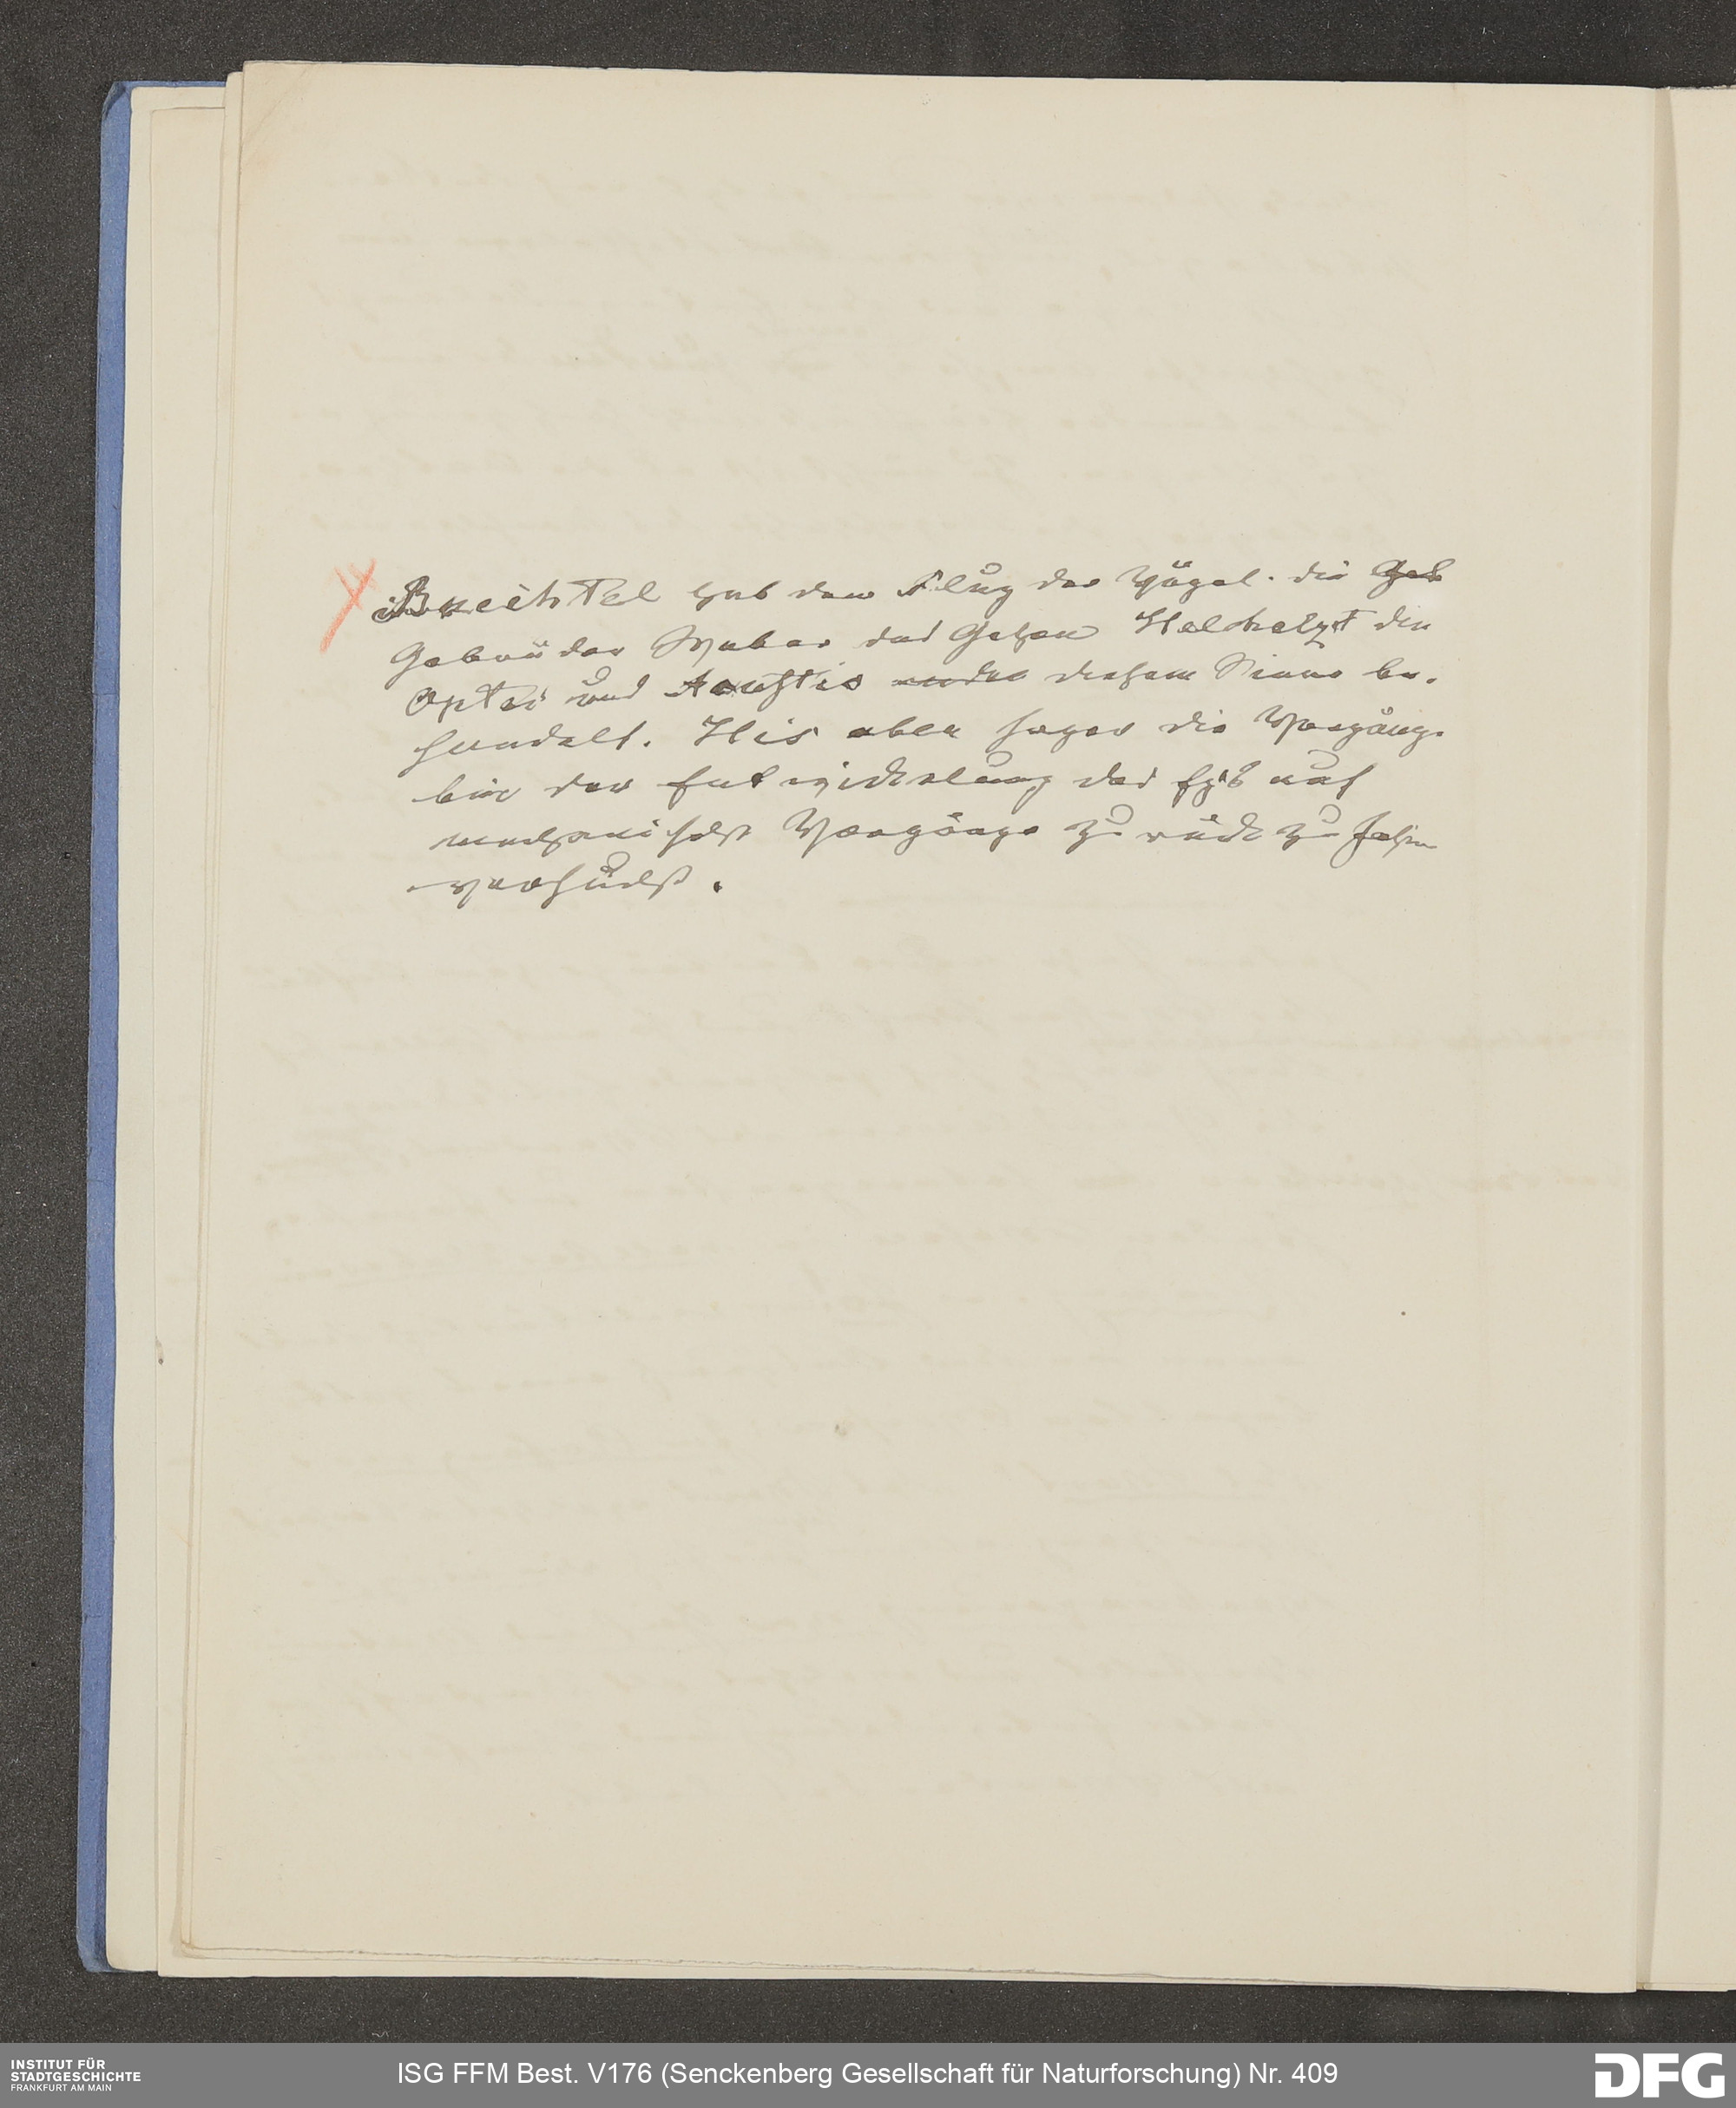 Brechtel hat den Flug der Vögel. die Geb
Gebrüder Weber das Gehen Helmholtzt die
Optik und Akustik diesem Sinne be-
handelt. His aber sogar die Vorgänge
bei der Entwickelung des Eis auf
mechanische Vorgänge zurück zu
versucht.
INSTITUT FÜR
STADTGESCHICHTE
FRANKFURT AM MAIN
ISG FFM Best. V176 (Senckenberg Gesellschaft für Naturforschung) Nr. 409
DFG